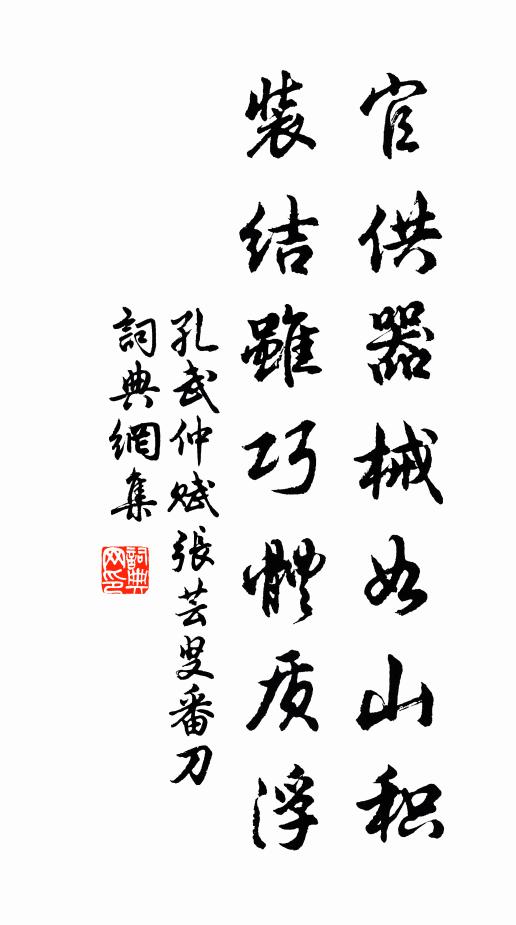 官供器械如山积
裝结雖巧體质浮
孔武仲赋張芸叟番刀
詞典網集
詞典
网印